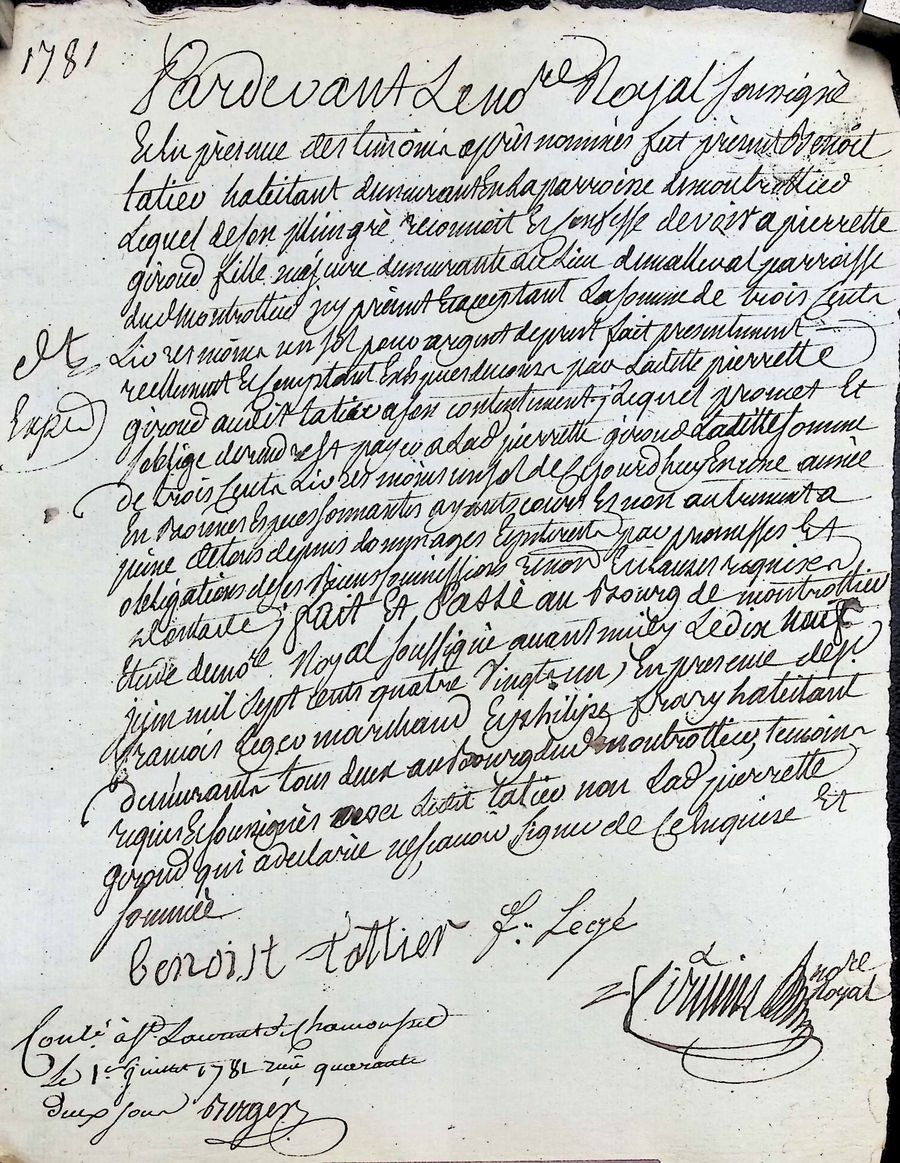 1781
Pardevant Le nore Royal soussigné
Et En présence des temoins après nommés fut présent Benoit
tatier habitant demeurant En La parroisse de montrottier
Lequel de son plein gré reconnoit Et Confesse devoir a pierrette
giroud fille majeure demeurante au Lieu de malleval parroisse
dud montrottier icy présent Et acceptant La somme de trois Cents
Livres moins un sol pour argent de prest fait presentement
reellement Et Comptant En Espèces de cours par Laditte pierrette
giroud audit tatier a son contentement ; Lequel promet Et
s'oblige de rendre Et payer a Lad pierrette giroud Laditte somme
de trois Cents Livres moins un sol de Cejourdhuy En une année
En Bonnes Espèces sonnantes ayants cours Et non autrement a
peine de tous depens dommages Et interets par promesses Et
obligations de ses Biens soumissions renon Et clauses requises
fait Et Passé au Bourg de montrottier
Etude de nore Royal soussigné avant midy Le dix neuf
juin mil sept cents quatre Vingt un, En presence de sr.
francois Leger marchand Et philipe frary habitant
demeurants tous deux au Bourg dud montrottier, temoins
requis Et soussignés avec Ledit tatier non Lad pierrette
giroud qui a declarée ne scavoir signer de Ce Enquise Et
sommée
Et
Exped
Benoist tattier fs. Legé
nore Royal
Conlé à St Laurent de Chamousset
Le 1er juillet 1781 reçu quarante
deux sous Berger